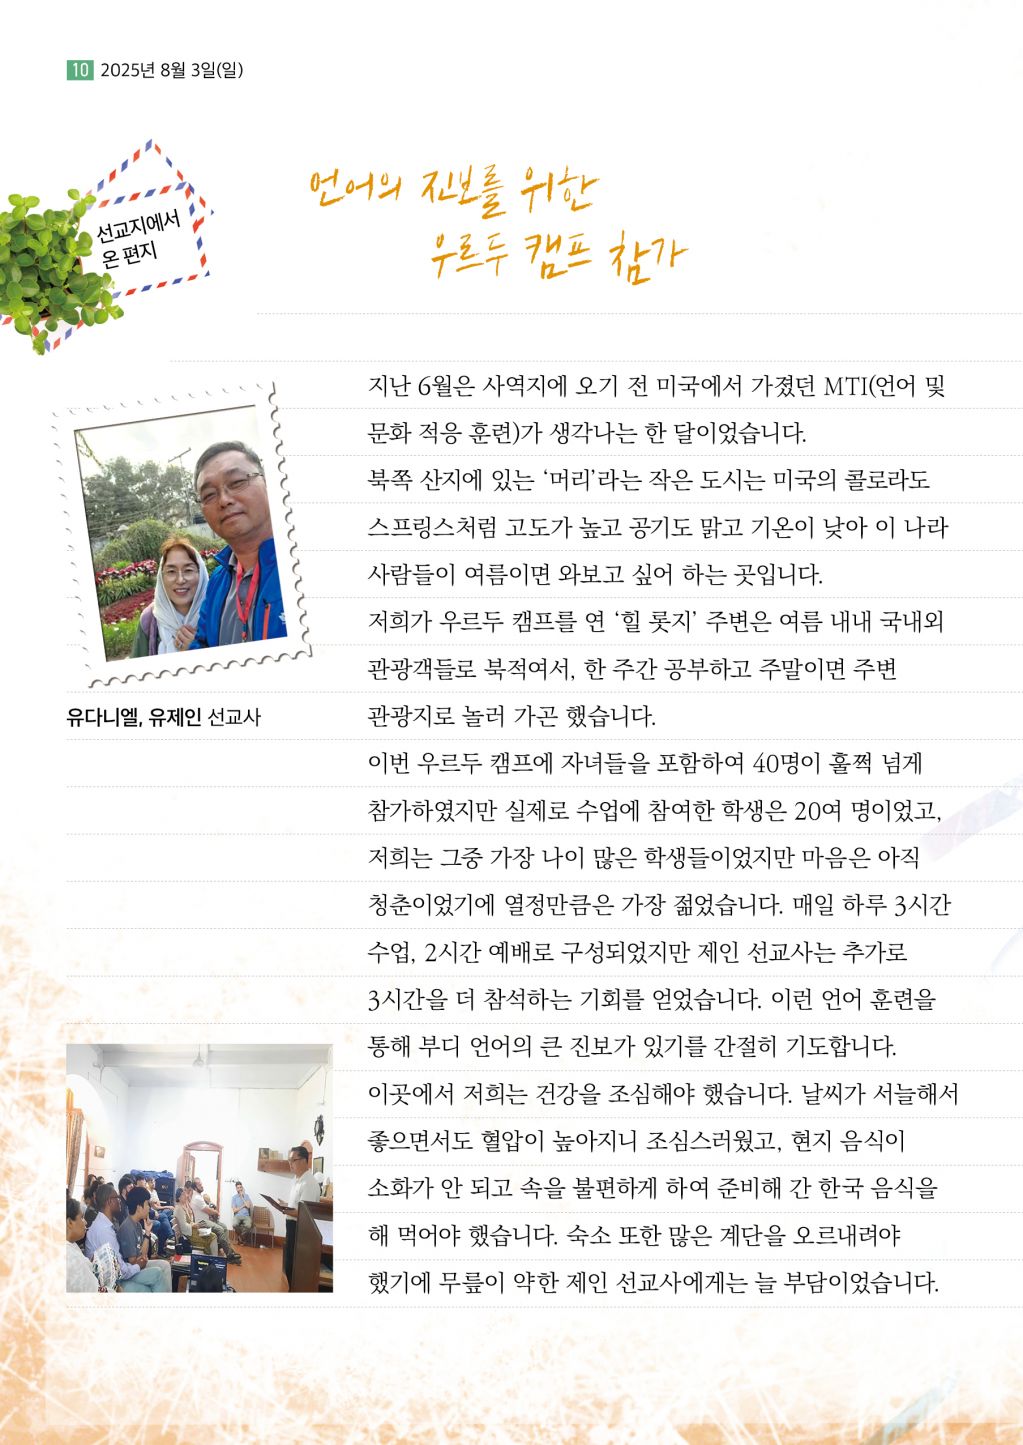 10 2025년 8월 3일(일)
선교지에서
온 편지
언어의 진보를 위한
우르두 캠프 참가
지난 6월은 사역지에 오기 전 미국에서 가졌던 MTI(언어 및
문화 적응 훈련)가 생각나는 한 달이었습니다.
북쪽 산지에 있는 ‘머리’라는 작은 도시는 미국의 콜로라도
스프링스처럼 고도가 높고 공기도 맑고 기온이 낮아 이 나라
사람들이 여름이면 와보고 싶어 하는 곳입니다.
저희가 우르두 캠프를 연 ‘힐 롯지’ 주변은 여름 내내 국내외
관광객들로 북적여서, 한 주간 공부하고 주말이면 주변
관광지로 놀러 가곤 했습니다.
이번 우르두 캠프에 자녀들을 포함하여 40명이 훌쩍 넘게
참가하였지만 실제로 수업에 참여한 학생은 20여 명이었고,
저희는 그중 가장 나이 많은 학생들이었지만 마음은 아직
청춘이었기에 열정만큼은 가장 젊었습니다. 매일 하루 3시간
수업, 2시간 예배로 구성되었지만 제인 선교사는 추가로
3시간을 더 참석하는 기회를 얻었습니다. 이런 언어 훈련을
통해 부디 언어의 큰 진보가 있기를 간절히 기도합니다.
이곳에서 저희는 건강을 조심해야 했습니다. 날씨가 서늘해서
좋으면서도 혈압이 높아지니 조심스러웠고, 현지 음식이
소화가 안 되고 속을 불편하게 하여 준비해 간 한국 음식을
해 먹어야 했습니다. 숙소 또한 많은 계단을 오르내려야
했기에 무릎이 약한 제인 선교사에게는 늘 부담이었습니다.
유다니엘, 유제인 선교사